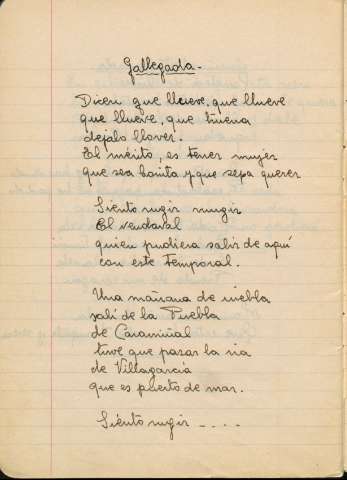 Gallegada.-
Dicen que llueve, que llueve
que llueve, que truena
dejalo llover.
El mérito, es tener mujer
que sea bonita y que sepa querer
Siento rugir rungir
El vendaval
quien pudiera salir de aquí
con este temporal.
Una mañana de niebla
salí de la Puebla
de Caramiñal
tuve que pasar la ria
de Villagarcía
que es puerto de mar.
Siento rugir ----